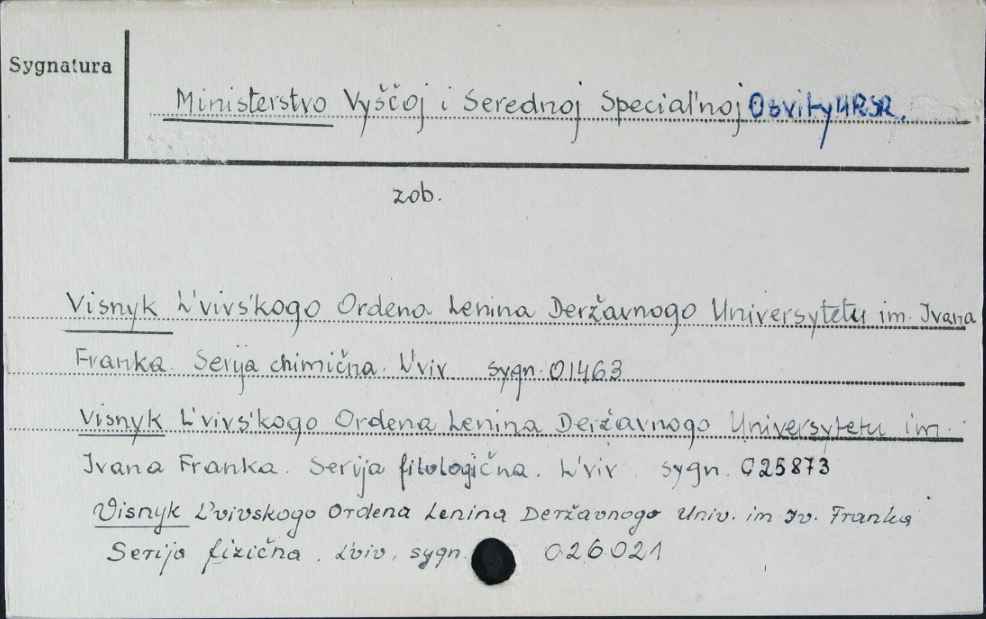 Sygnatura
Ministerstvo Vyščoj i Serednoj Special'noj Osvity URSR.
zob.
Visnyk L'vivs'kogo Ordena Lenina Deržavnogo Universytetu im. Ivana
Franka. Serija chimična. L'viv sygn. 01463
Visnyk L'vivs'kogo Ordena Lenina Deržavnogo Universytetu im.
Ivana Franka. Serija filologična. L'viv. sygn. 025873
Visnyk L'vivskogo Ordena Lenina Deržavnogo Univ. im Iv. Franka
Serija fizična. L'viv. sygn. 026021